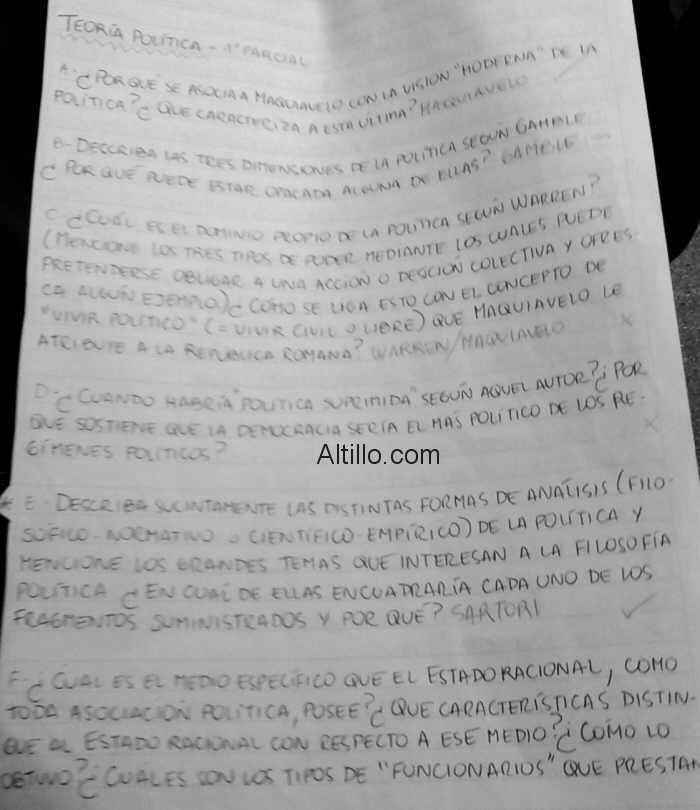 TEORÍA POLÍTICA - 1° PARCIAL
A- ¿PORQUÉ SE ASOCIA A MAQUIAVELO CON LA VISIÓN "MODERNA" DE LA
POLÍTICA? ¿QUE CARACTERIZA A ESTA ÚLTIMA? MAQUIAVELO
B- DESCRIBA LAS TRES DIMENSIONES DE LA POLÍTICA SEGÚN GAMBLE
¿POR QUÉ PUEDE ESTAR OPACADA ALGUNA DE ELLAS? GAMBLE
C- ¿CUÁL ES EL DOMINIO PROPIO DE LA POLÍTICA SEGÚN WARREN?
(MENCIONE LOS TRES TIPOS DE PODER MEDIANTE LOS CUALES PUEDE
PRETENDERSE OBLIGAR A UNA ACCIÓN O DESCIÓN COLECTIVA Y OFRES-
CA ALGÚN EJEMPLO) ¿CÓMO SE LIGA ESTO CON EL CONCEPTO DE
"VIVIR POLÍTICO" (= VIVIR CIVIL O LIBRE) QUE MAQUIAVELO LE
ATRIBUTE A LA REPÚBLICA ROMANA? WARREN/MAQUIAVELO X
D- ¿CUANDO HABRÍA "POLÍTICA SUPRIMIDA" SEGÚN AQUEL AUTOR? ¿POR
QUÉ SOSTIENE QUE LA DEMOCRACIA SERÍA EL MÁS POLÍTICO DE LOS RE-
GÍMENES POLÍTICOS? X
Altillo.com
* E- DESCRIBA SUCINTAMENTE LAS DISTINTAS FORMAS DE ANÁLISIS (FILO-
SÓFICO-NORMATIVO o CIENTÍFICO-EMPÍRICO) DE LA POLÍTICA Y
MENCIONE LOS GRANDES TEMAS QUE INTERESAN A LA FILOSOFÍA
POLÍTICA ¿EN CUÁL DE ELLAS ENCUADRARÍA CADA UNO DE LOS
FRAGMENTOS SUMINISTRADOS Y POR QUÉ? SARTORI ✓
F- ¿CUAL ES EL MEDIO ESPECÍFICO QUE EL ESTADO RACIONAL, COMO
TODA ASOCIACIÓN POLÍTICA, POSEE? ¿QUE CARACTERÍSTICAS DISTIN-
GUE AL ESTADO RACIONAL CON RESPECTO A ESE MEDIO? ¿CÓMO LO
OBTUVO? ¿CUALES SON LOS TIPOS DE "FUNCIONARIOS" QUE PRESTAN